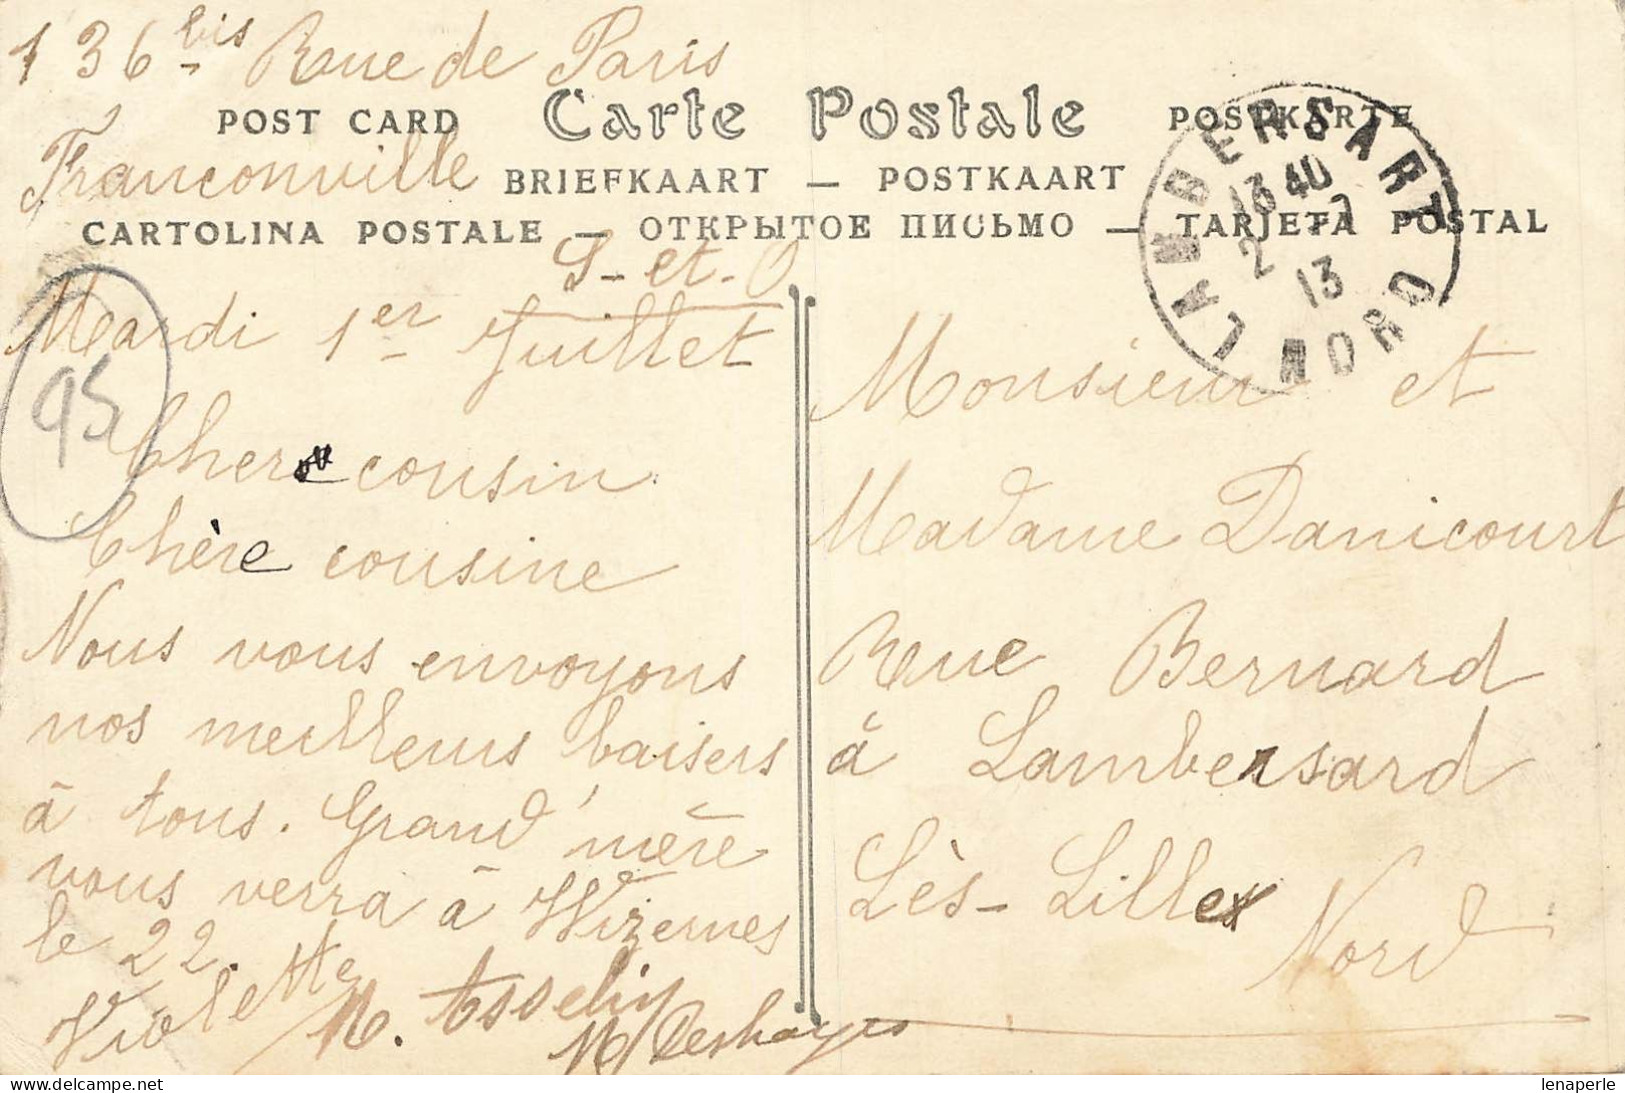 136 bis Rue de Paris
POST CARD Carte Postale POSTKARTE
Franconville
BRIEFKAART — POSTKAART
CARTOLINA POSTALE — ОТКРЫТОЕ ПИСЬМО — TARJETA POSTAL
S-et-O
LAMBERSART
13 40
2 - 7
13
NORD
Mardi 1er Juillet
95
Cher cousin
Chère cousine
Nous vous envoyons
nos meilleurs baisers
à tous. Grand'mère
vous verra à Wizernes
le 22.
Violette
M. Asselin
M Deshayes
Monsieur et
Madame Danicourt
Rue Bernard
à Lambersard
Lès-Lille
Nord
lenaperle